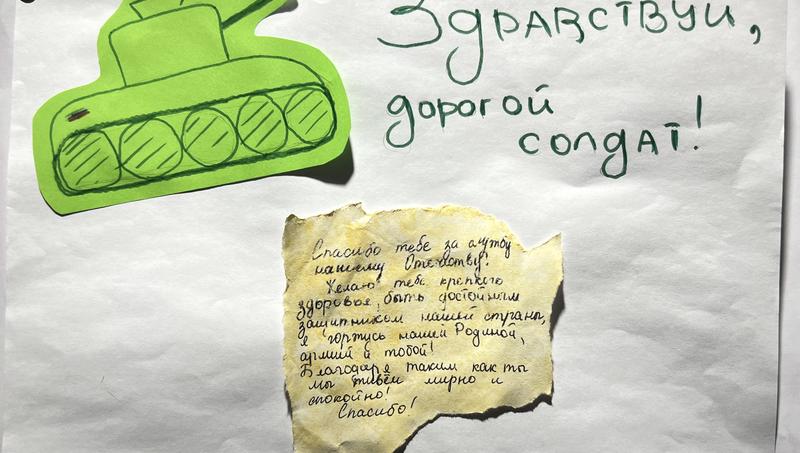 Здравствуй,
дорогой
солдат!
Спасибо тебе за службу
нашему Отечеству!
Желаю тебе крепкого
здоровья, быть достойным
защитником нашей страны,
я горжусь нашей Родиной,
армией и тобой!
Благодаря таким как ты
мы живём мирно и
спокойно!
Спасибо!